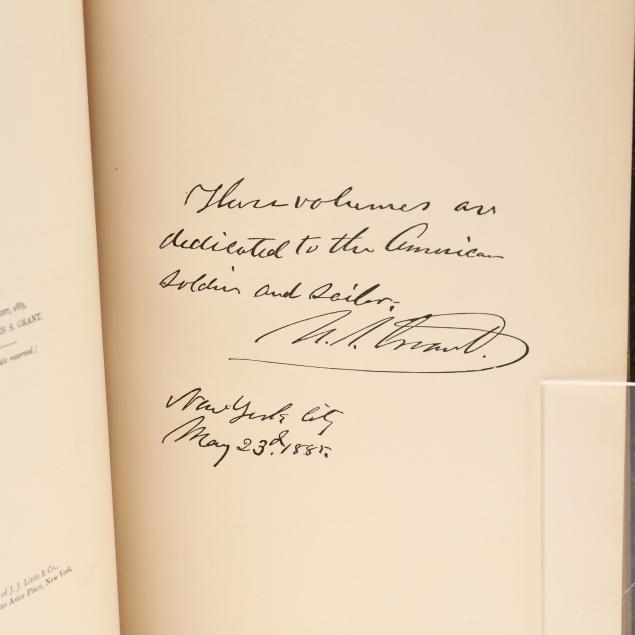 These volumes are
dedicated to the American
soldier and sailor.
U. S. Grant.
New York City
May 23d. 1885.
1885,
S. GRANT.
reserved.]
of J. J. Little & Co.,
Astor Place, New York.